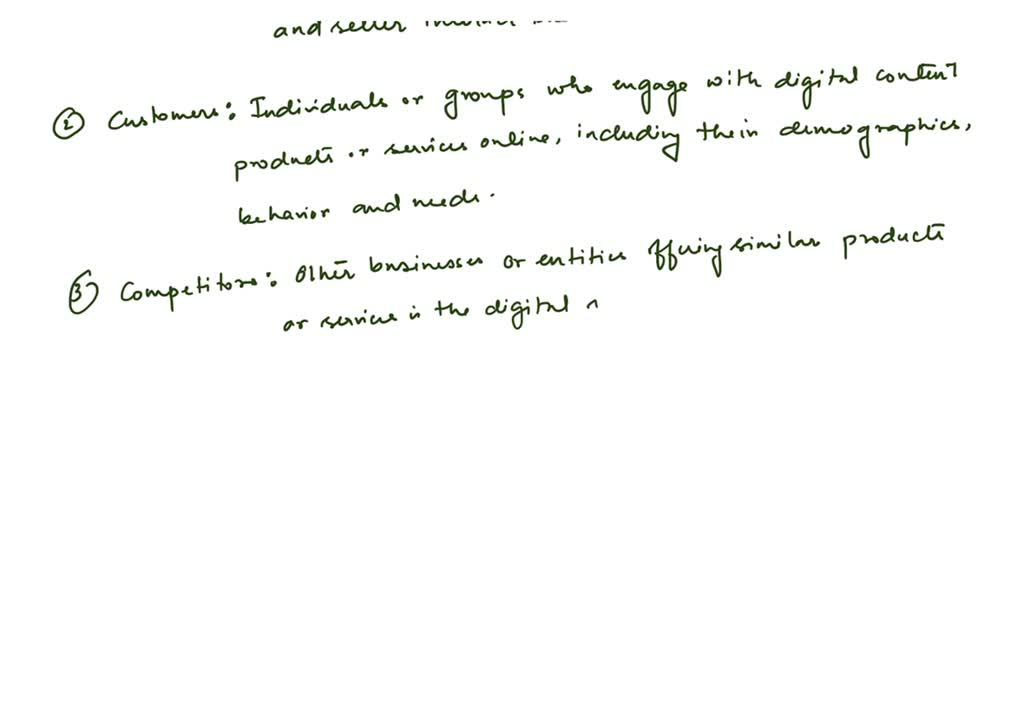 and seller
② Customers: Individuals or groups who engage with digital content
products or services online, including their demographics,
behavior and needs.
③ Competitors: Other businesses or entities offering similar products
or services in the digital